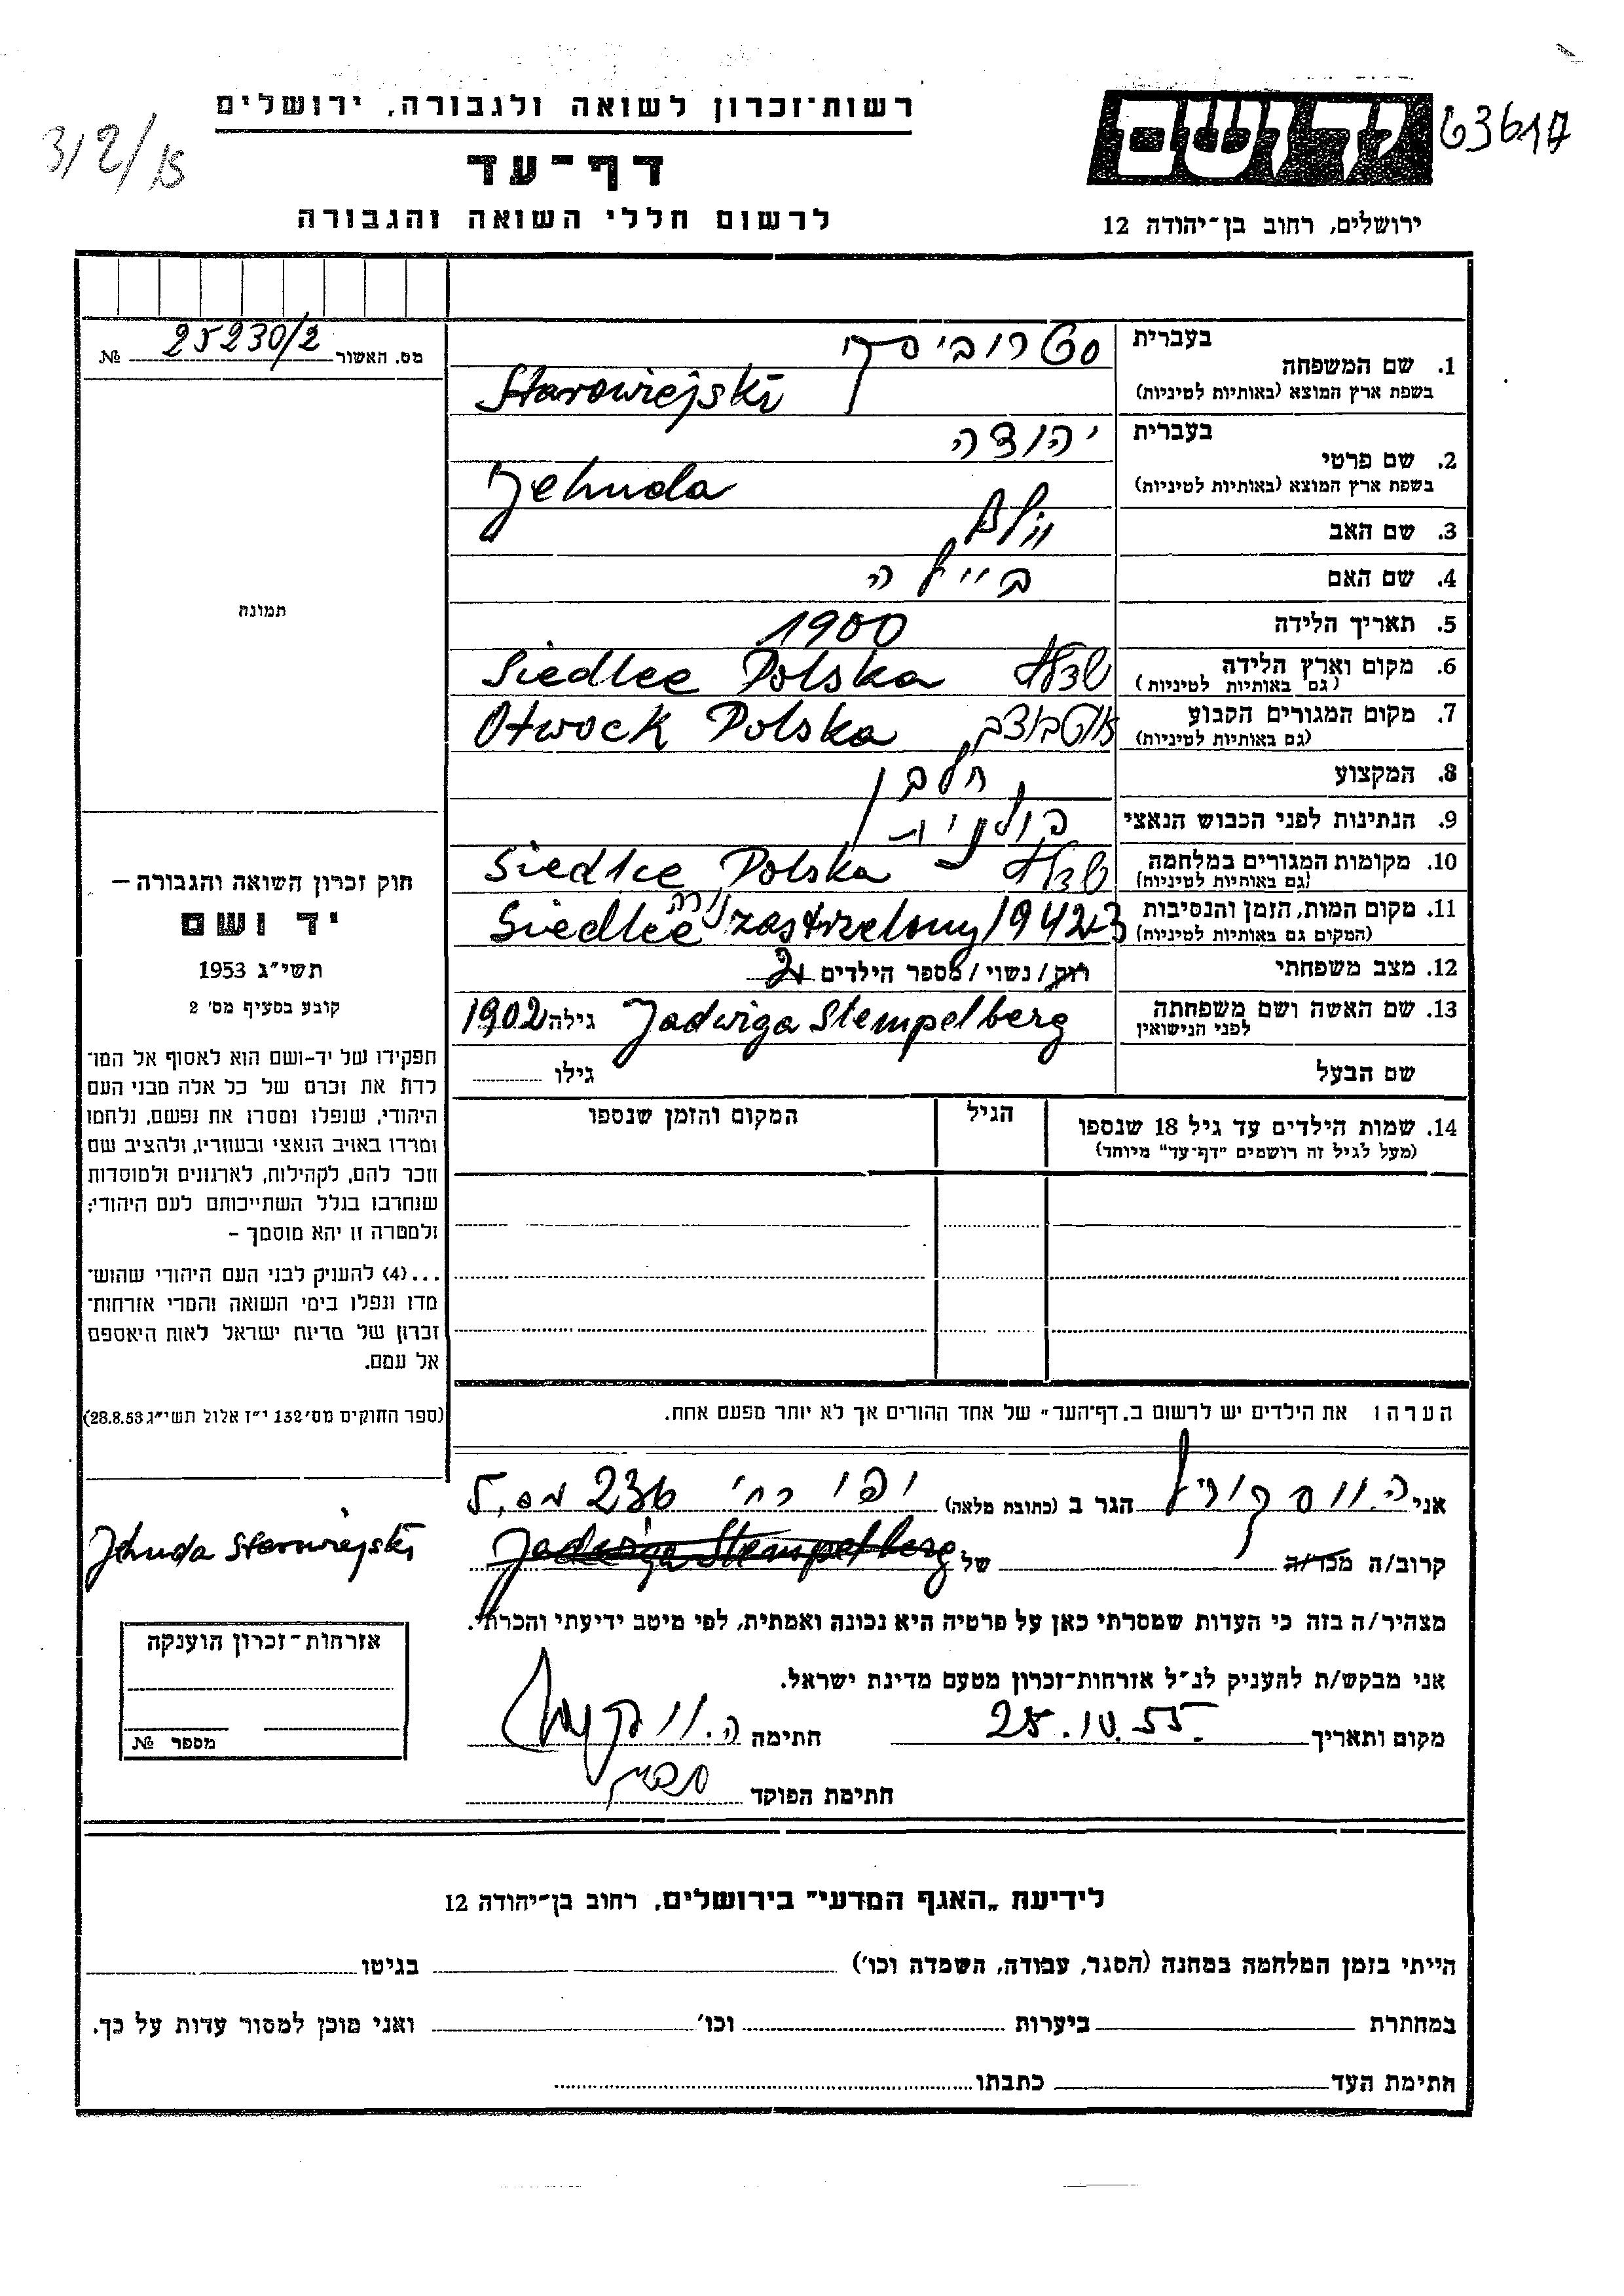 רשות־זכרון לשואה ולגבורה, ירושלים
דף־עד
לרשום חללי השואה והגבורה
ירושלים, רחוב בן־יהודה 12
מס. האשור 25230/2 №
1. שם המשפחה
בעברית סטרוביסקי
בשפת ארץ המוצא (באותיות לטיניות) Starowiejski
2. שם פרטי
בעברית יהודה
בשפת ארץ המוצא (באותיות לטיניות) Jehuda
3. שם האב
4. שם האם ביילה
5. תאריך הלידה 1900
6. מקום וארץ הלידה (גם באותיות לטיניות) שדלץ Siedlce Polska
7. מקום המגורים הקבוע (גם באותיות לטיניות) אוטבוצק Otwock Polska
8. המקצוע חלבן
9. הנתינות לפני הכבוש הנאצי פולנית
10. מקומות המגורים במלחמה (גם באותיות לטיניות) שדלץ Siedlce Polska
11. מקום המות, הזמן והנסיבות (המקום גם באותיות לטיניות) Siedlce נורה zastrzelony 1942-3
12. מצב משפחתי רוק / נשוי / מספר הילדים 2
13. שם האשה ושם משפחתה לפני הנישואין Jadwiga Stempelberg גילה 1902
שם הבעל גילו
14. שמות הילדים עד גיל 18 שנספו (מעל לגיל זה רושמים "דף־עד" מיוחד) הגיל המקום והזמן שנספו
הערה: את הילדים יש לרשום ב„דף־העד" של אחד ההורים אך לא יותר מפעם אחת.
תמונה
חוק זכרון השואה והגבורה –
יד ושם
תשי"ג 1953
קובע בסעיף מס' 2
תפקידו של יד-ושם הוא לאסוף אל המו־
לדת את זכרם של כל אלה מבני העם
היהודי, שנפלו ומסרו את נפשם, נלחמו
ומרדו באויב הנאצי ובעוזריו, ולהציב שם
וזכר להם, לקהילות, לארגונים ולמוסדות
שנחרבו בגלל השתייכותם לעם היהודי;
ולמטרה זו יהא מוסמך –
...(4) להעניק לבני העם היהודי שהוש־
מדו ונפלו בימי השואה והמרי אזרחות־
זכרון של מדינת ישראל לאות היאספם
אל עמם.
(ספר החוקים מס' 132 י"ז אלול תשי"ג 28.8.53)
אני הגר ב (כתובת מלאה) יפו רח' 236 מס. 5
קרוב/ה מכר/ה של Jadwiga Stempelberg
Jehuda Starowiejski
מצהיר/ה בזה כי העדות שמסרתי כאן על פרטיה היא נכונה ואמתית, לפי מיטב ידיעתי והכרתי.
אני מבקש/ת להעניק לנ"ל אזרחות־זכרון מטעם מדינת ישראל.
מקום ותאריך 25.10.55 חתימה
חתימת הפוקד
אזרחות־זכרון הוענקה
מספר №
לידיעת „האגף המדעי" בירושלים, רחוב בן־יהודה 12
הייתי בזמן המלחמה במחנה (הסגר, עבודה, השמדה וכו') בגיטו
במחתרת ביערות וכו' ואני מוכן למסור עדות על כך.
חתימת העד כתבתו